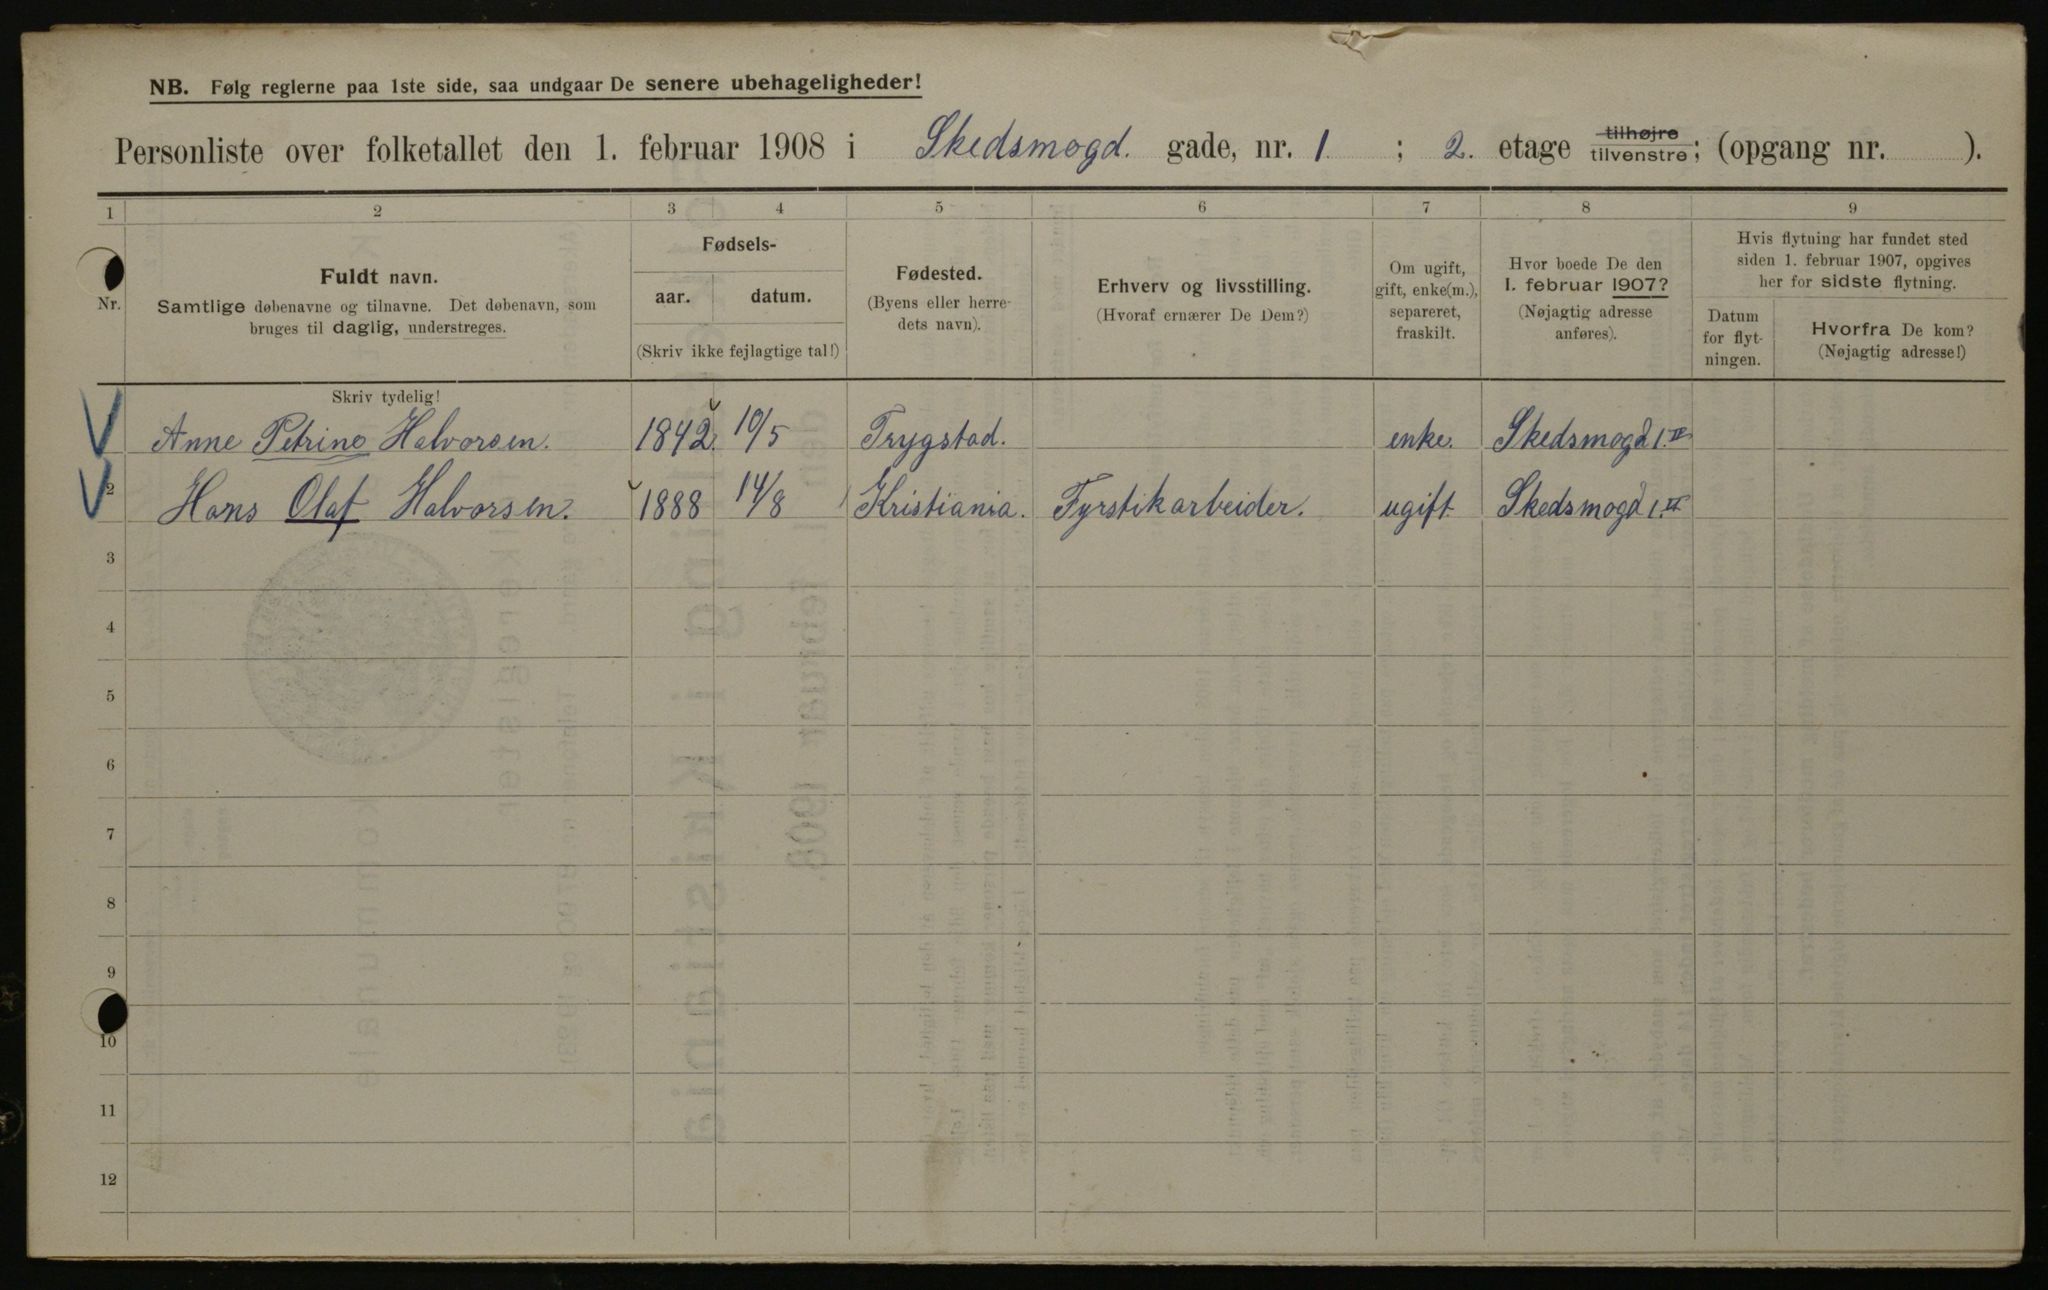 NB. Følg reglerne paa 1ste side, saa undgaar De senere ubehageligheder!
Personliste over folketallet den 1. februar 1908 i Skedsmogd. gade, nr. 1 ; 2. etage tilhøjre tilvenstre; (opgang nr. ).
1 2 3 4 5 6 7 8 9
Nr.
Fuldt navn.
Samtlige døbenavne og tilnavne. Det døbenavn, som
bruges til daglig, understreges.
Fødsels-
aar. datum.
(Skriv ikke fejlagtige tal!)
Fødested.
(Byens eller herre-
dets navn).
Erhverv og livsstilling.
(Hvoraf ernærer De Dem?)
Om ugift,
gift, enke(m.),
separeret,
fraskilt.
Hvor boede De den
1. februar 1907?
(Nøjagtig adresse
anføres).
Hvis flytning har fundet sted
siden 1. februar 1907, opgives
her for sidste flytning.
Datum
for flyt-
ningen.
Hvorfra De kom?
(Nøjagtig adresse!)
Skriv tydelig!
1 Anne Petrine Halvorsen. 1842. 10/5 Trygstad. enke. Skedsmogd 1. II
2 Hans Olaf Halvorsen. 1888 14/8 Kristiania. Fyrstikarbeider. ugift. Skedsmogd 1. II
3
4
5
6
7
8
9
10
11
12